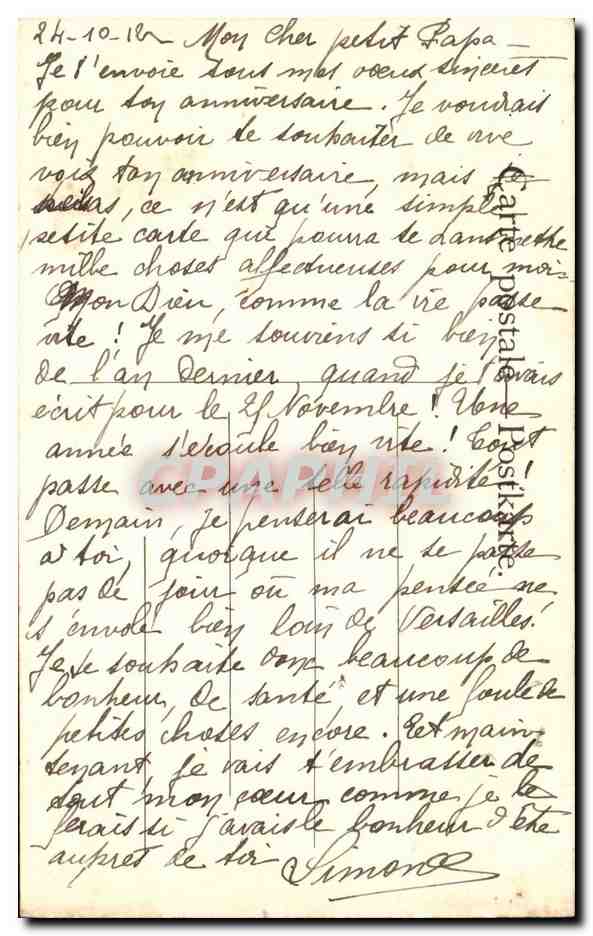 24-10-12 Mon cher petit Papa —
Je t'envoie tous mes voeux sincères
pour ton anniversaire. Je voudrais
bien pouvoir te souhaiter de vive
voix ton anniversaire, mais
ce n'est qu'une simple
petite carte qui pourra te transmettre
mille choses affectueuses pour moi-
Mon Dieu, comme la vie passe
vite! Je me souviens si bien
de l'an dernier, quand je t'avais
écrit pour le 25 Novembre! Une
année s'écoule bien vite! Tout
passe avec une telle rapidité!
Demain, je penserai beaucoup
à toi, quoique il ne se passe
pas de jour où ma pensée ne
s'envole bien loin de Versailles!
Je te souhaite donc beaucoup de
bonheur, de santé, et une foule de
petites choses encore. Et main-
tenant je vais t'embrasser de
tout mon coeur comme je le
ferais si j'avais le bonheur d'être
auprès de toi Simone
Carte postale — Postkarte.
CPAPHIL